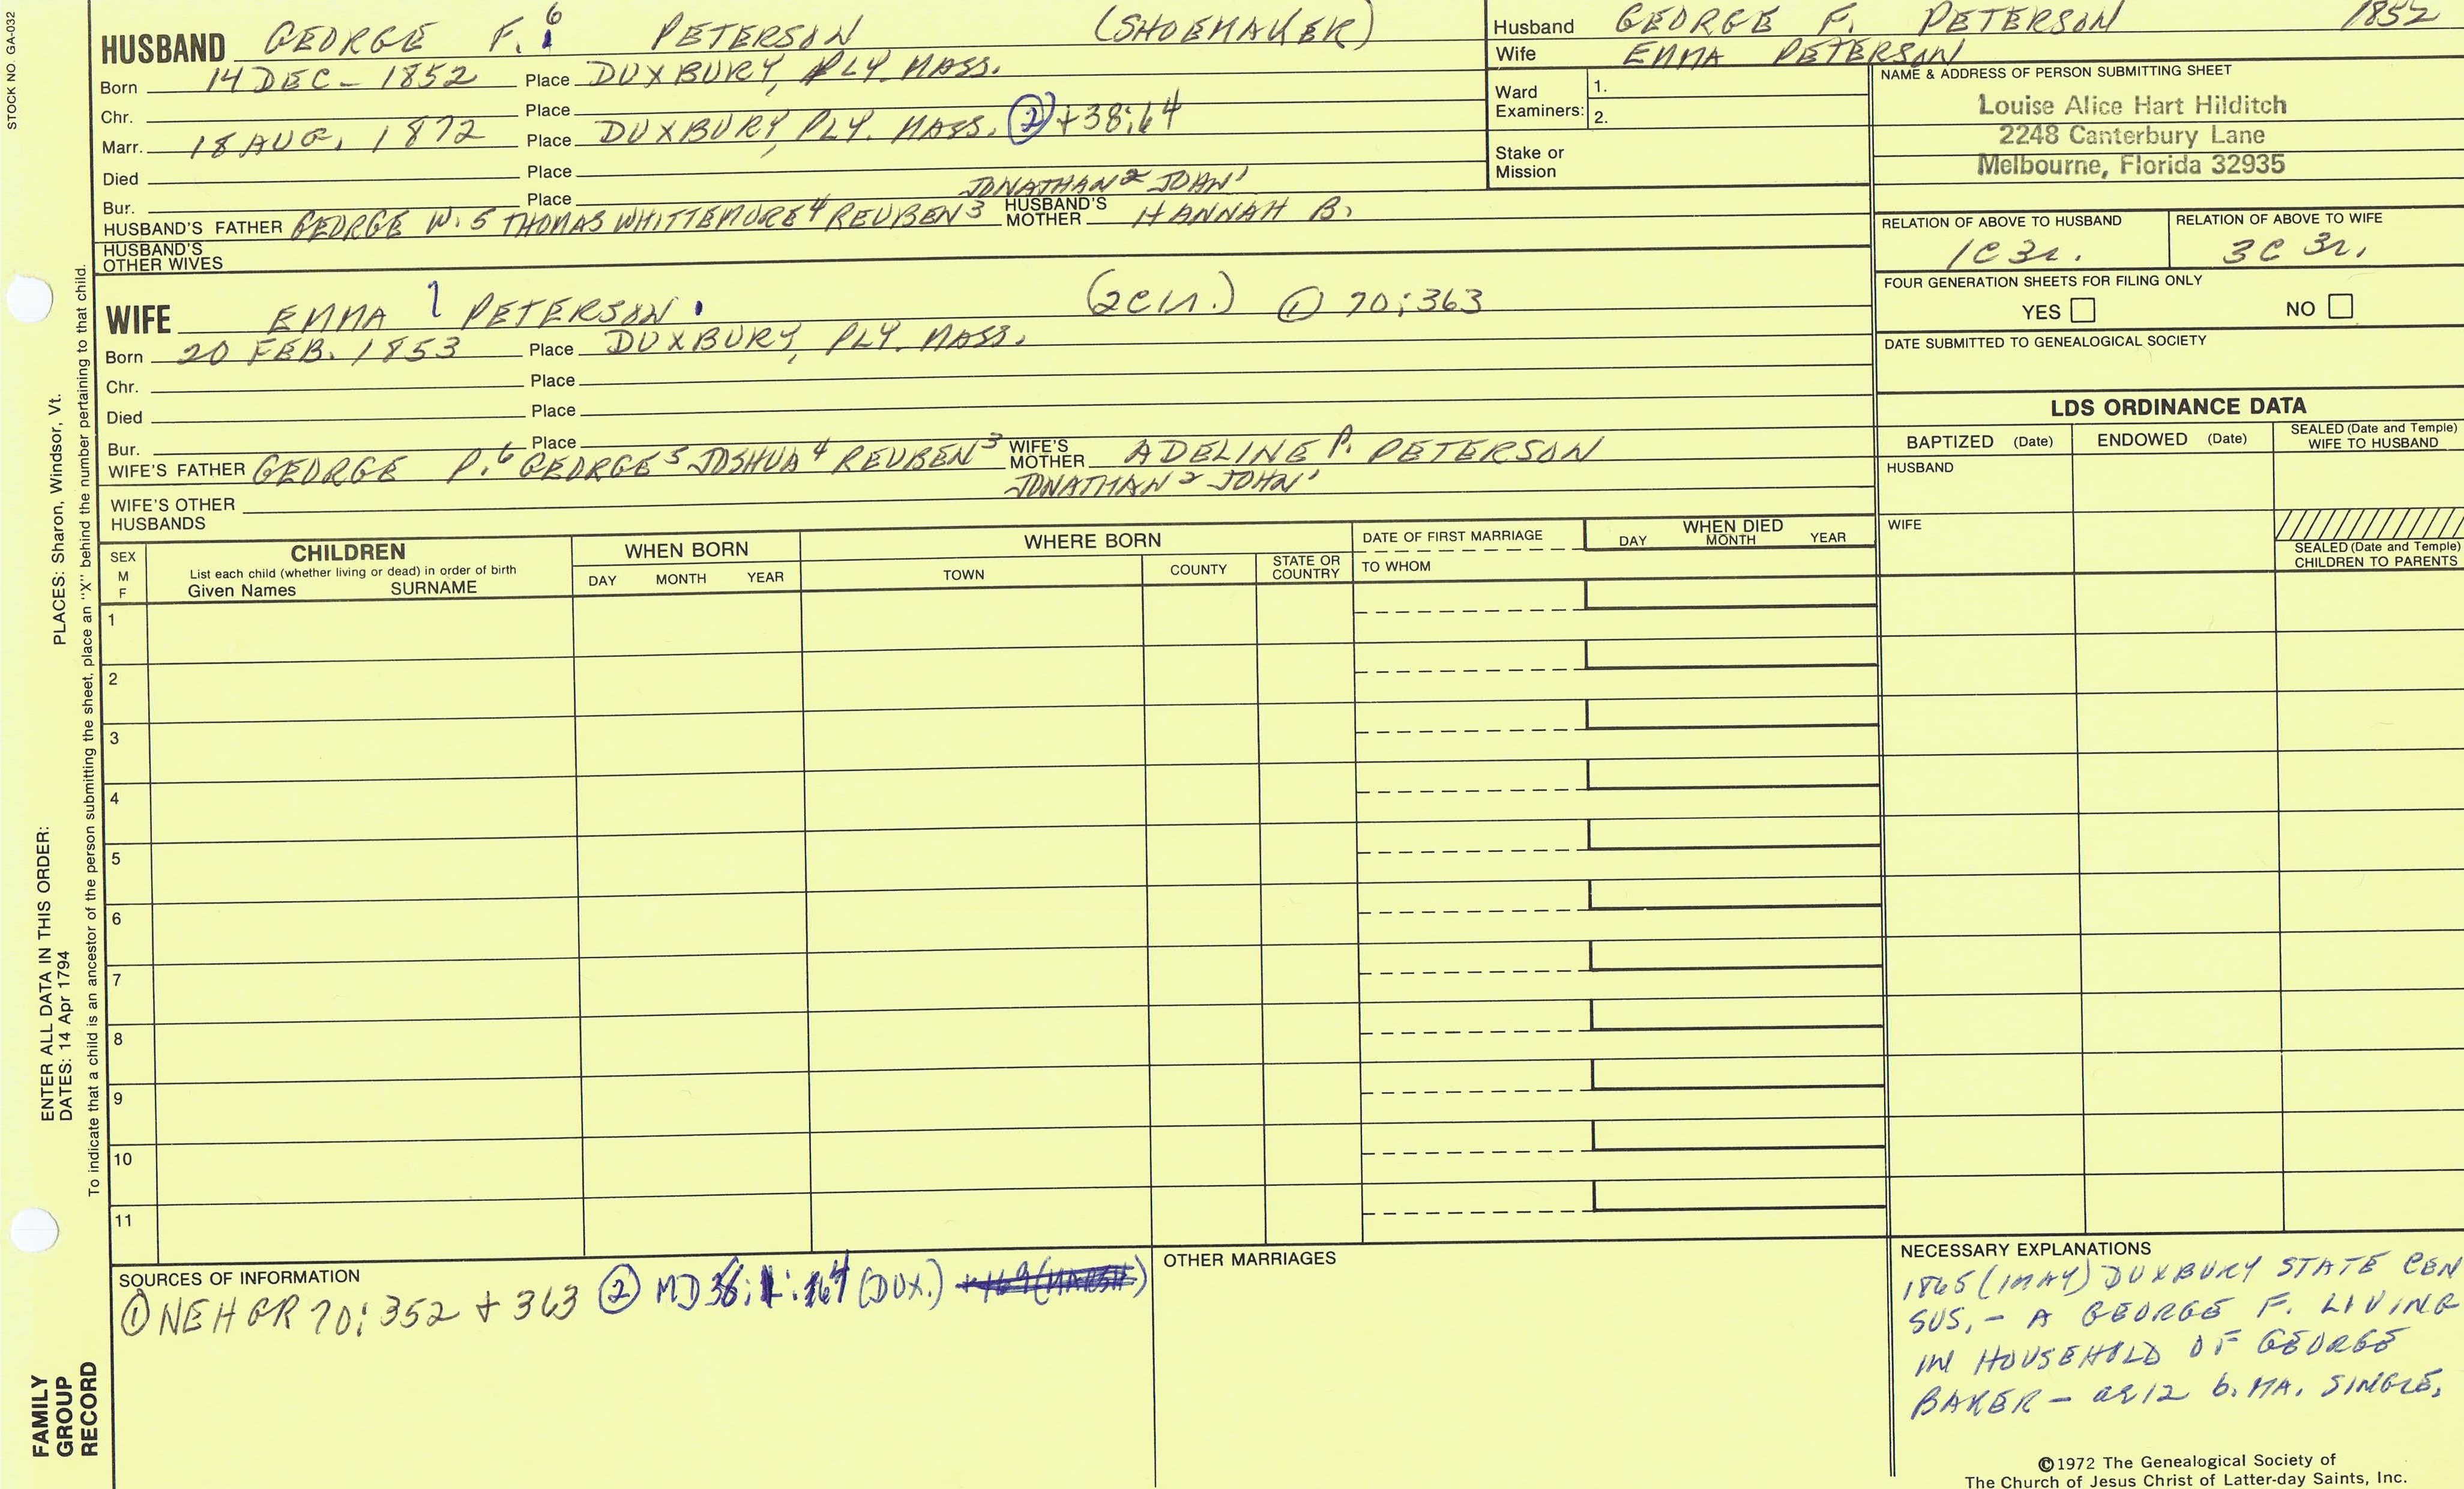 STOCK NO. GA-032
HUSBAND GEORGE F. 6 PETERSON (SHOEMAKER)
Born 14 DEC - 1852 Place DUXBURY, PLY. MASS.
Chr. Place
Marr. 18 AUG. 1872 Place DUXBURY, PLY. MASS. ② + 38:64
Died Place
Bur. Place JONATHAN 2 JOHN 1
HUSBAND'S FATHER GEORGE W. 5 THOMAS WHITTEMORE 4 REUBEN 3 HUSBAND'S MOTHER HANNAH B.
HUSBAND'S OTHER WIVES
WIFE EMMA 7 PETERSON. (2C1r.) ① 70:363
Born 20 FEB. 1853 Place DUXBURY, PLY. MASS.
Chr. Place
Died Place
Bur. Place
WIFE'S FATHER GEORGE P. 6 GEORGE 5 JOSHUA 4 REUBEN 3 WIFE'S MOTHER ADELINE P. PETERSON
JONATHAN 2 JOHN 1
WIFE'S OTHER HUSBANDS
Husband GEORGE F. PETERSON 1852
Wife EMMA PETERSON
Ward Examiners: 1.
2.
Stake or Mission
NAME & ADDRESS OF PERSON SUBMITTING SHEET
Louise Alice Hart Hilditch
2248 Canterbury Lane
Melbourne, Florida 32935
RELATION OF ABOVE TO HUSBAND RELATION OF ABOVE TO WIFE
1C 3r. 3C 3r.
FOUR GENERATION SHEETS FOR FILING ONLY
YES NO
DATE SUBMITTED TO GENEALOGICAL SOCIETY
LDS ORDINANCE DATA
BAPTIZED (Date) ENDOWED (Date) SEALED (Date and Temple) WIFE TO HUSBAND
HUSBAND
WIFE
SEALED (Date and Temple) CHILDREN TO PARENTS
SEX M F
CHILDREN
List each child (whether living or dead) in order of birth
Given Names SURNAME
WHEN BORN
DAY MONTH YEAR
WHERE BORN
TOWN COUNTY STATE OR COUNTRY
DATE OF FIRST MARRIAGE
TO WHOM
WHEN DIED
DAY MONTH YEAR
1
2
3
4
5
6
7
8
9
10
11
SOURCES OF INFORMATION
① NEHGR 70:352 + 363 ② MD (DUX.)
OTHER MARRIAGES
NECESSARY EXPLANATIONS
1865 (1 MAY) DUXBURY STATE CEN
SUS, - A GEORGE F. LIVING
IN HOUSEHOLD OF GEORGE
BAKER - ae 12 b. MA. SINGLE,
©1972 The Genealogical Society of
The Church of Jesus Christ of Latter-day Saints, Inc.
PLACES: Sharon, Windsor, Vt.
ENTER ALL DATA IN THIS ORDER:
DATES: 14 Apr 1794
To indicate that a child is an ancestor of the person submitting the sheet, place an "X" behind the number pertaining to that child.
FAMILY
GROUP
RECORD